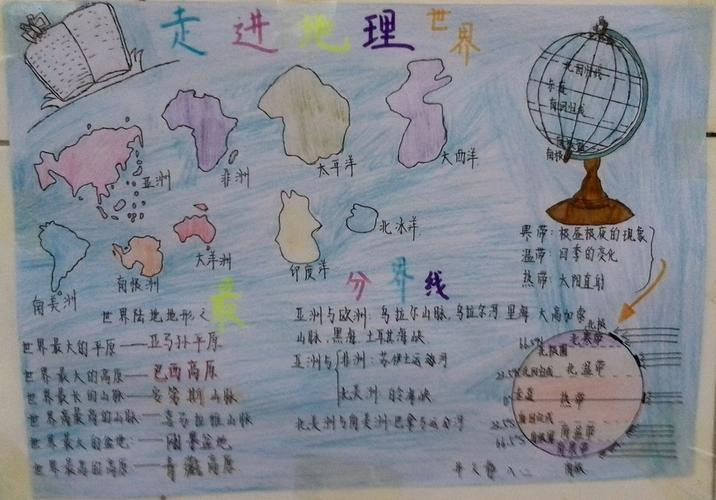 走进地理世界
北回归线
赤道
南回归线
南极
亚洲
非洲
太平洋
大西洋
南美洲
南极洲
大洋洲
印度洋
北冰洋
寒带：极昼极夜的现象
温带：四季的变化
热带：太阳直射
世界陆地地形之最
世界最大的平原——亚马孙平原
世界最大的高原——巴西高原
世界最长的山脉——安第斯山脉
世界最高的山脉——喜马拉雅山脉
世界最大的盆地——刚果盆地
世界最高的高原——青藏高原
分界线
亚洲与欧洲：乌拉尔山脉，乌拉尔河 里海 大高加索
山脉，黑海 土耳其海峡
亚洲与 非洲：苏伊士运河
北美洲：白令海峡
北美与南美洲：巴拿马运河
北极
66.5°N
北寒带
北极圈
23.5°N
北回归线
北温带
0°
赤道
热带
23.5°S
南回归线
南温带
66.5°S
南极圈
南寒带
南极